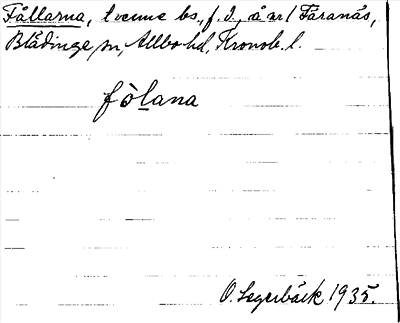 Fållarna, tvenne bs., f. J., å nr 1 Fåranäs,
Blädinge sn, Allbo hd, Kronob. l.
fòlana
O. Segerbäck 1935.